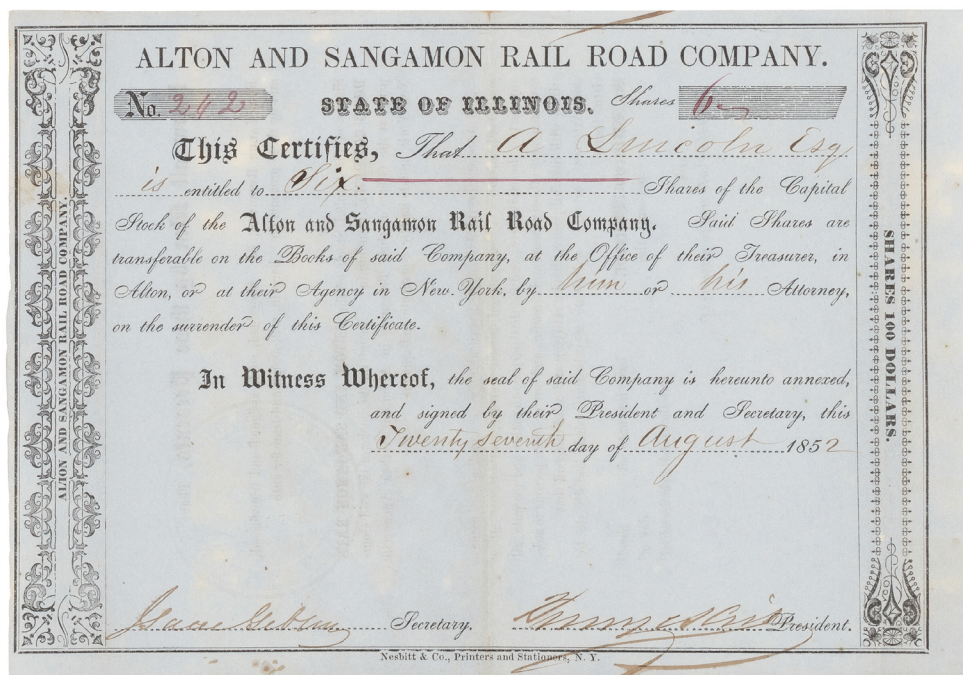 ALTON AND SANGAMON RAIL ROAD COMPANY.
No. 242 STATE OF ILLINOIS. Shares 6
This Certifies, That A Lincoln Esq
is entitled to Six Shares of the Capital
Stock of the Alton and Sangamon Rail Road Company. Said Shares are
transferable on the Books of said Company, at the Office of their Treasurer, in
Alton, or at their Agency in New York, by him or his Attorney,
on the surrender of this Certificate.
In Witness Whereof, the seal of said Company is hereunto annexed,
and signed by their President and Secretary, this
Twenty seventh day of August 1852
Isaac Secretary. President.
Nesbitt & Co., Printers and Stationers, N. Y.
ALTON AND SANGAMON RAIL ROAD COMPANY.
SHARES 100 DOLLARS.